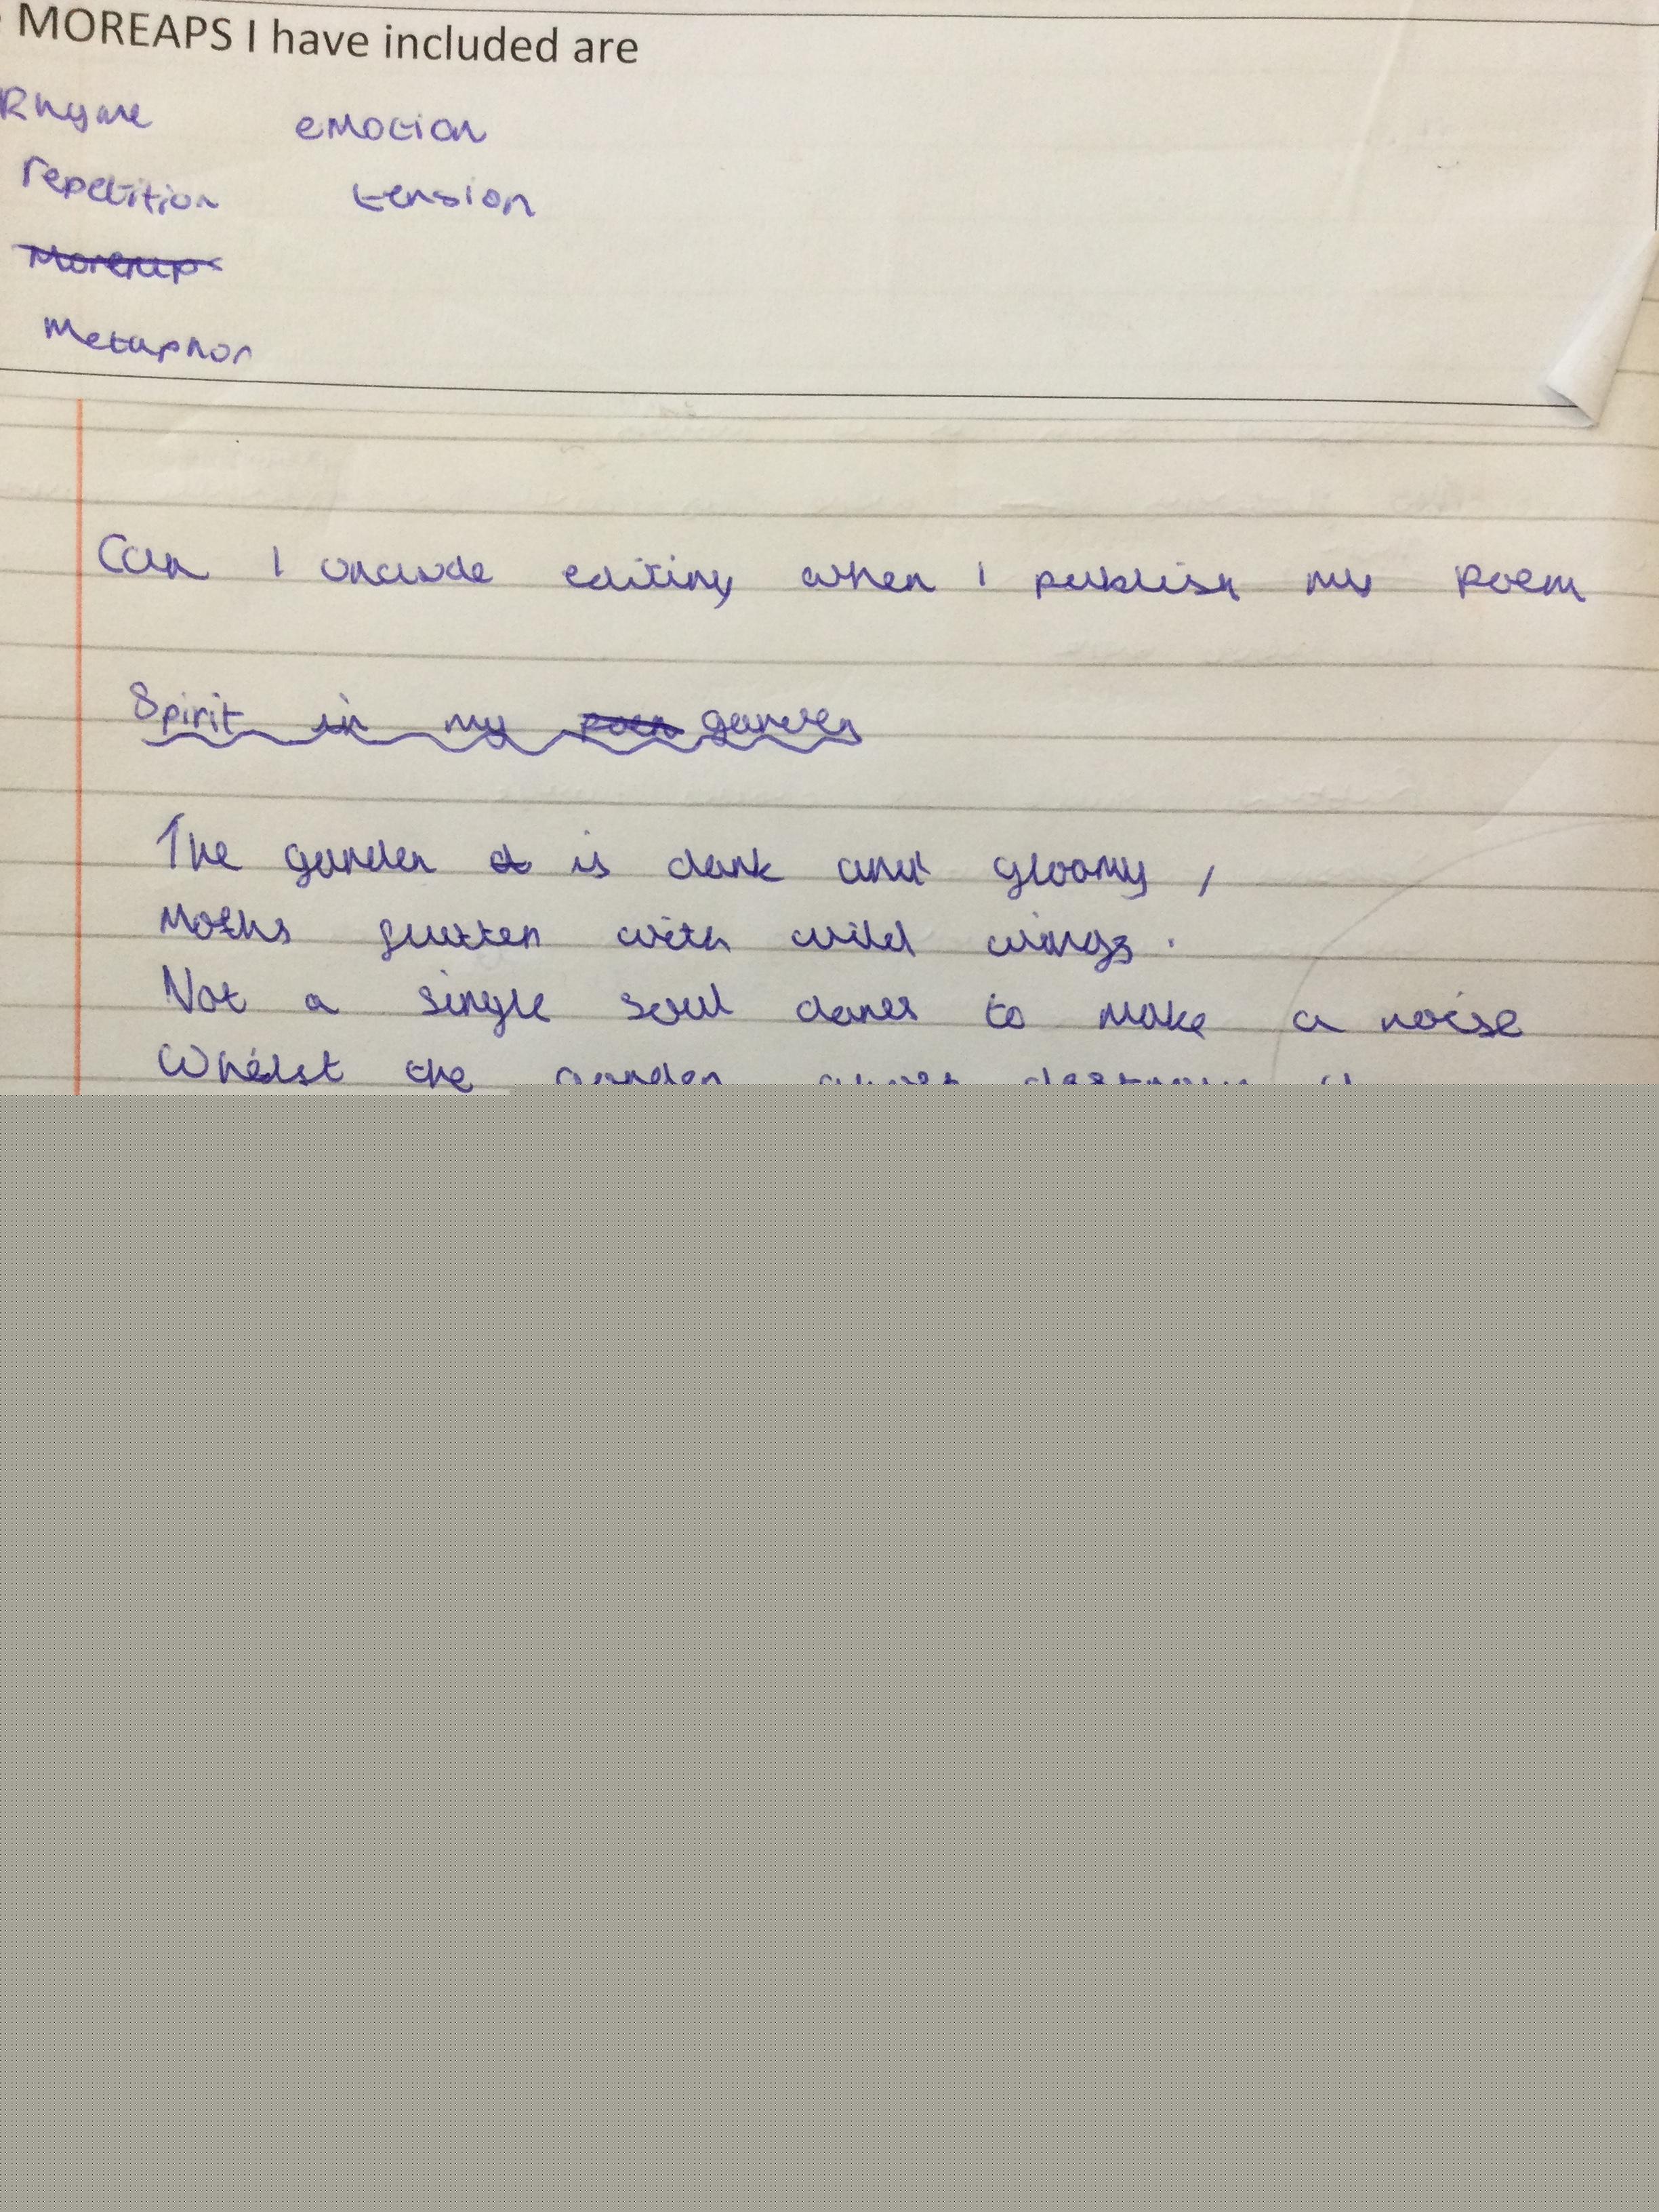 MOREAPS I have included are
Rhyme emotion
repetition tension
Metaphor
Can I include editing when I publish my poem
Spirit in my garden
The garden is dark and gloomy,
Moths flutter with wild wings.
Not a single soul dares to make a noise
Whilst the garden